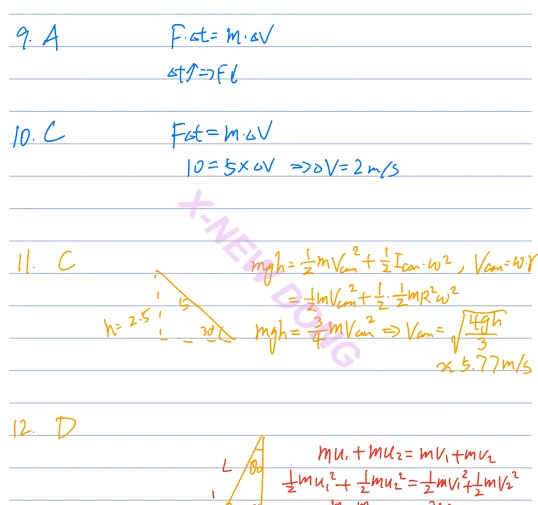 9. A F·Δt = m·ΔV
Δt↑ => F↓
10. C FΔt = m·ΔV
10 = 5×ΔV => ΔV = 2m/s
11. C mgh = 1/2 mVcm² + 1/2 Icm·ω², Vcm = ω·r
= 1/2 mVcm² + 1/2·1/2 mR²ω²
5
h = 2.5 30° mgh = 3/4 mVcm² => Vcm = √(4gh/3)
≈ 5.77m/s
X-NEW DONG
12. D
L θ₀ mu₁ + mu₂ = mv₁ + mv₂
1/2 mu₁² + 1/2 mu₂² = 1/2 mv₁² + 1/2 mv₂²